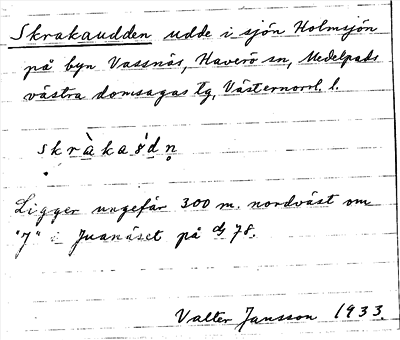 Skrakaudden udde i sjön Holmsjön
på byn Vassnäs, Haverö sn, Medelpads
västra domsagas tg, Västernorrl. l.
skràkaódn̥
Ligger ungefär 300 m. nordväst om
"J" i Juanäset på 78.
Valter Jansson 1933.